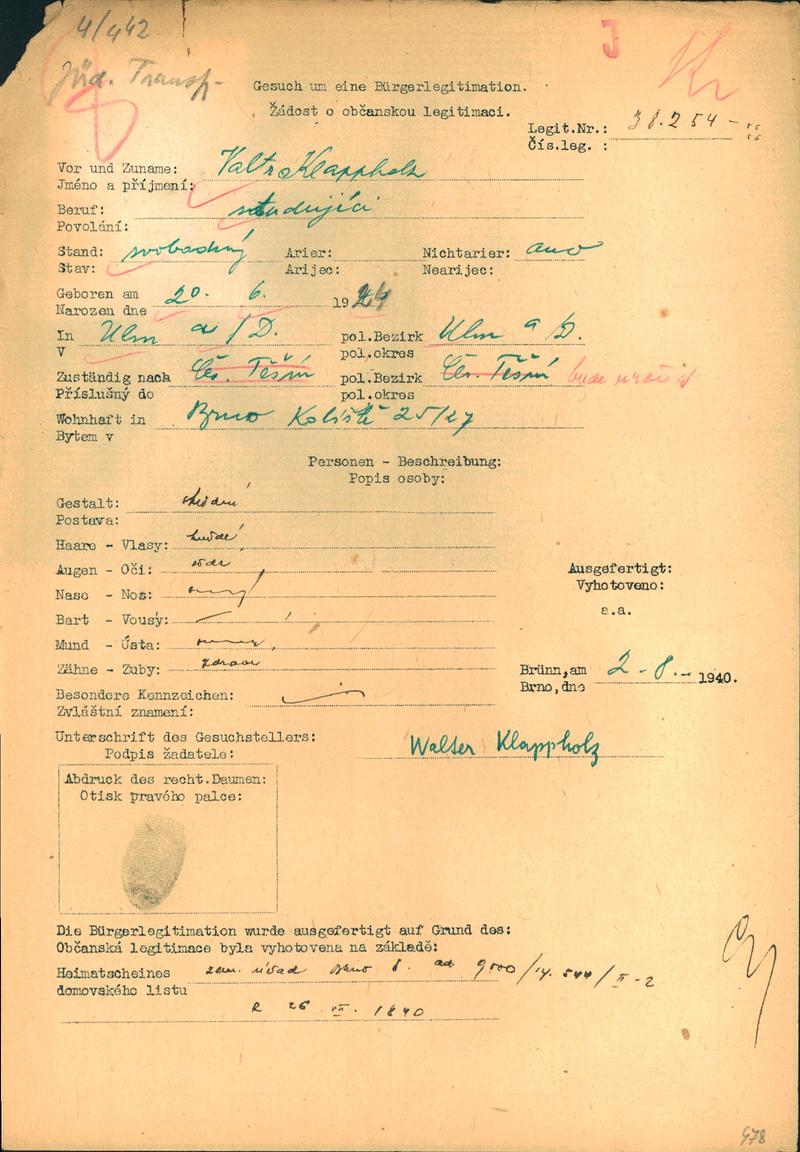 4/442
Jüd. Transp.
J
Kr
Gesuch um eine Bürgerlegitimation.
Žádost o občanskou legitimaci.
Legit.Nr.: 38.254
Čís.leg. :
Vor und Zuname: Valtr Klappholz
Jméno a příjmení:
Beruf: studující
Povolání:
Stand: svobodný Arier: Nichtarier: ano
Stav: Arijec: Nearijec:
Geboren am 20. 6. 1924
Narozen dne
In Ulm a/D. pol.Bezirk Ulm a/D.
V pol.okres
Zuständig nach Čes. Těšín pol.Bezirk Čes. Těšín bude
Příslušný do pol.okres
Wohnhaft in Brno Koliště 25/27
Bytem v
Personen - Beschreibung:
Popis osoby:
Gestalt: střední
Postava:
Haare - Vlasy: hnědé
Augen - Oči:
Nase - Nos:
Bart - Vousy:
Mund - Ústa:
Zähne - Zuby: zdravé
Besondere Kennzeichen:
Zvláštní znamení:
Ausgefertigt:
Vyhotoveno:
a.a.
Brünn,am 2-8.- 1940.
Brno,dne
Unterschrift des Gesuchstellers: Walter Klappholz
Podpis žadatele:
Abdruck des recht.Daumen:
Otisk pravého palce:
Die Bürgerlegitimation wurde ausgefertigt auf Grund des:
Občanská legitimace byla vyhotovena na základě:
Heimatscheines zem. úřad Brno č. ad 9500/14.544/II-2
domovského listu
z 26 VII. 1940
478